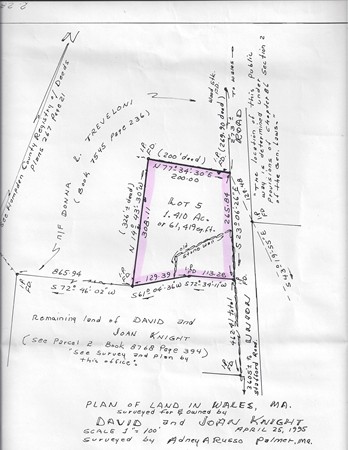 N
See Hampden County Registry of Deeds
Plans 267 Page 21
N/F DONNA L. TREVELONI
(Book 7545 Page 236)
(200' deed)
N 77°-34'-30"E
200.00
LOT 5
1.410 Ac.
or 61,419 sq.ft.
(326'± deed)
308.11
265.84
(269.90 deed)
ROAD
"The location of this Public
way determined under
Provisions
Chapter 86 Section 2
the Gen. Laws."
old
stone wall
129.39
113.28
865.94
S 72°-46'-02"W
UNION
Stafford Road
Remaining land of DAVID and
JOAN KNIGHT
(See Parcel 2 Book 8768 Page 394)
"See Survey and plan by
this office."
PLAN OF LAND IN WALES, MA.
surveyed for & owned by
DAVID and JOAN KNIGHT
SCALE 1"=100' APRIL 25, 1995
surveyed by Adney A Russo Palmer, Ma.